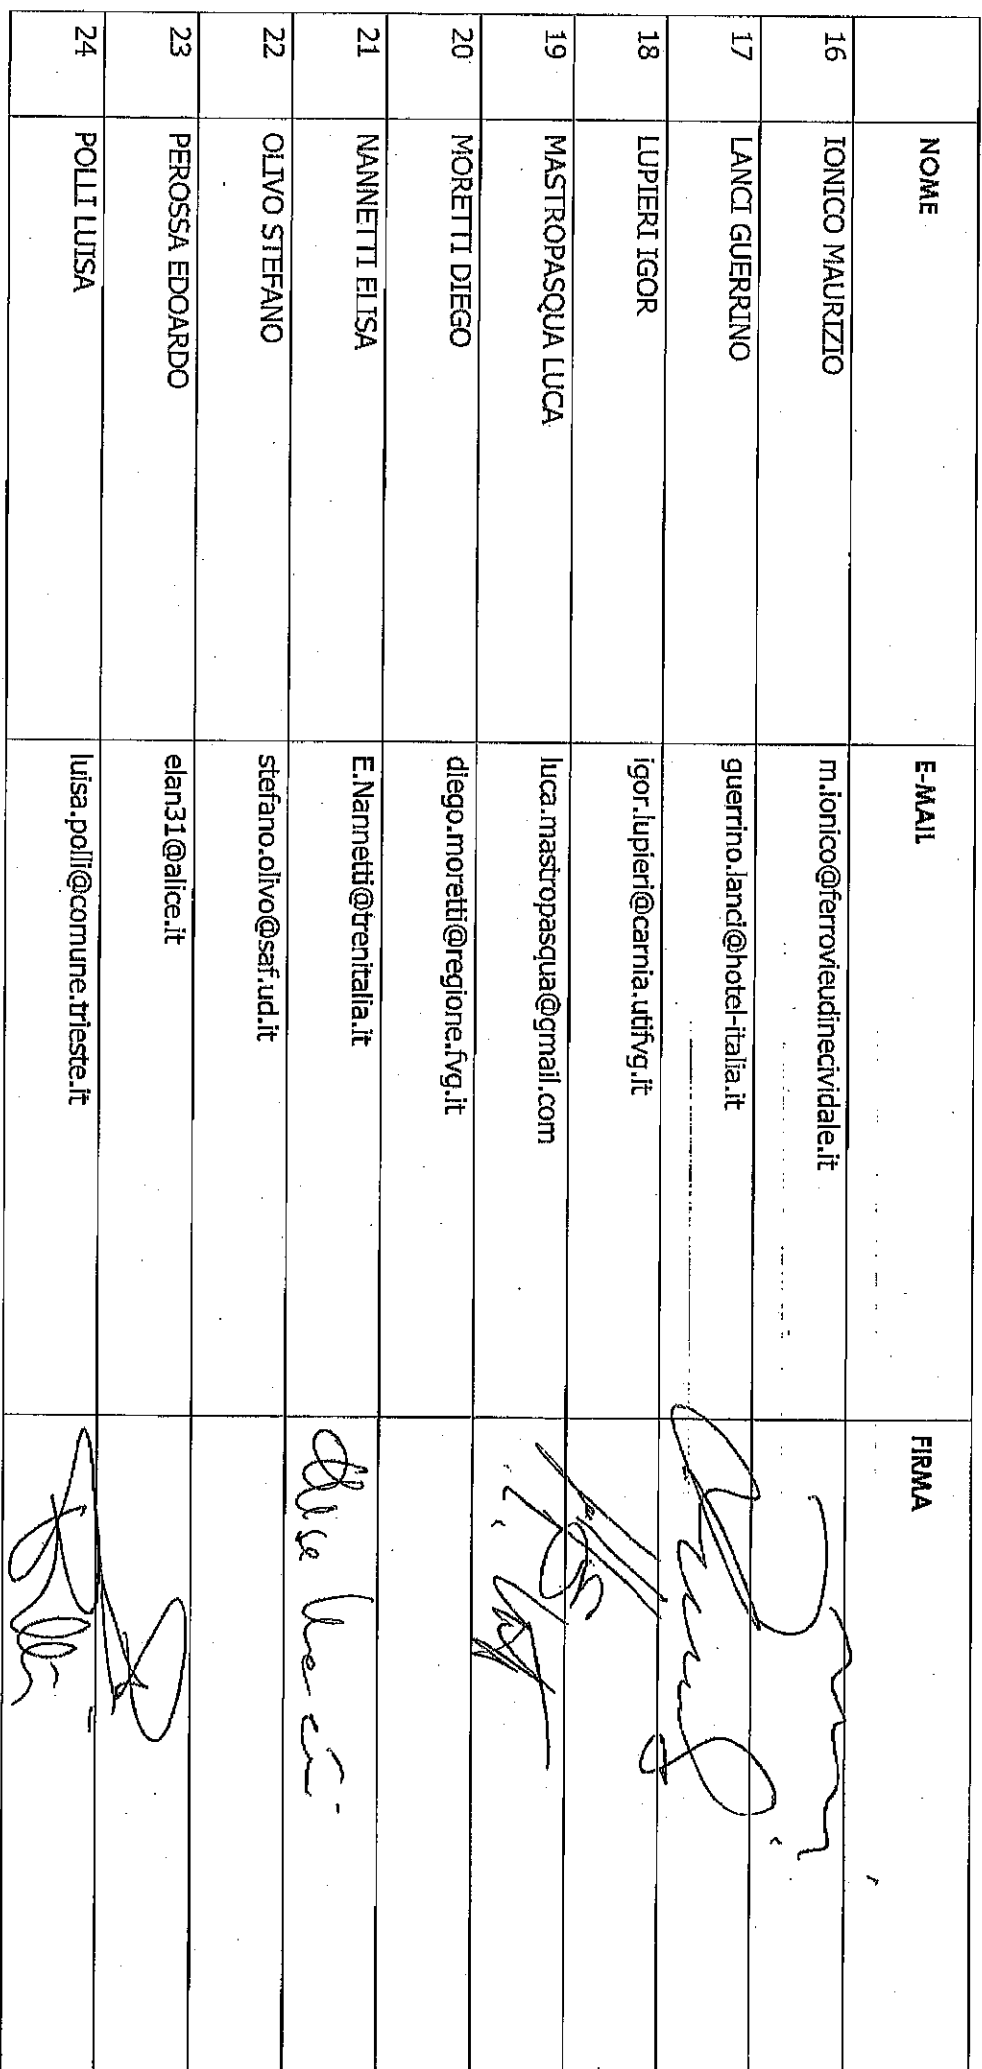 NOME E-MAIL FIRMA
16 IONICO MAURIZIO m.ionico@ferrovieudinecividale.it
17 LANCI GUERRINO guerrino.lanci@hotel-italia.it
18 LUPIERI IGOR igor.lupieri@carnia.utifvg.it
19 MASTROPASQUA LUCA luca.mastropasqua@gmail.com
20 MORETTI DIEGO diego.moretti@regione.fvg.it
21 NANNETTI ELISA E.Nannetti@trenitalia.it
22 OLIVO STEFANO stefano.olivo@saf.ud.it
23 PEROSSA EDOARDO elan31@alice.it
24 POLLI LUISA luisa.polli@comune.trieste.it